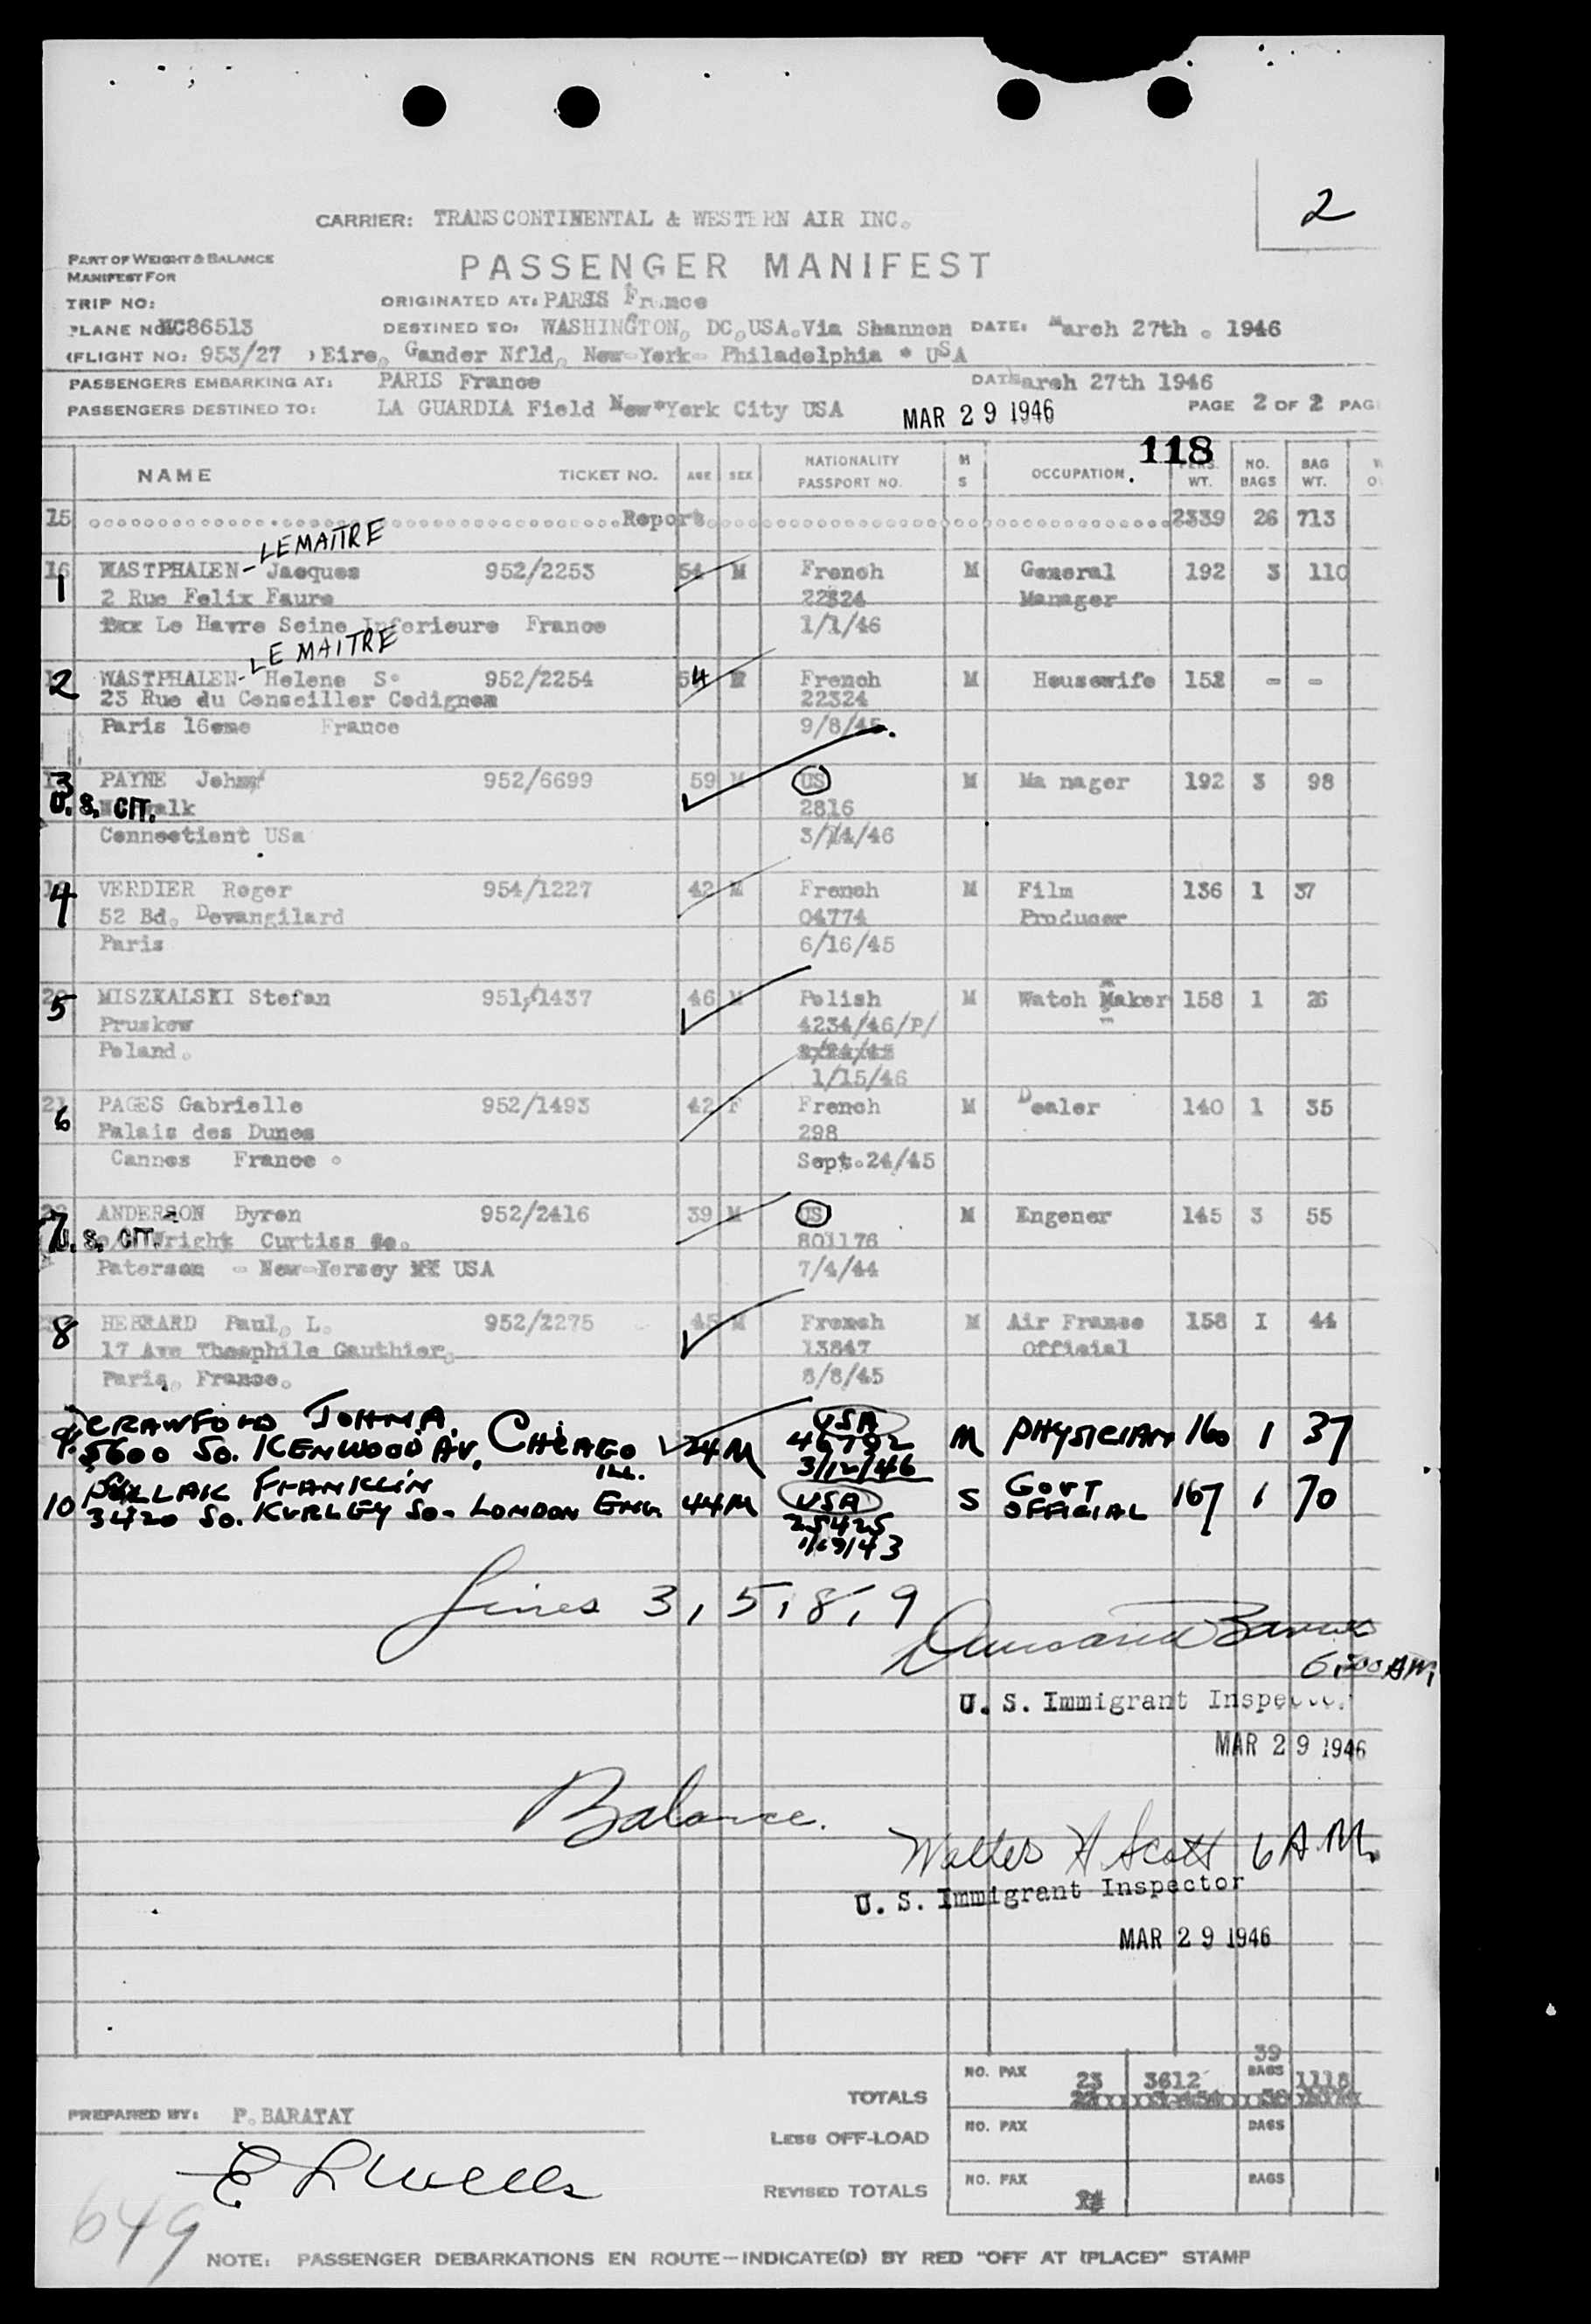 2
CARRIER: TRANSCONTINENTAL & WESTERN AIR INC.
PART OF WEIGHT & BALANCE
MANIFEST FOR
PASSENGER MANIFEST
TRIP NO:
ORIGINATED AT: PARIS France
PLANE NO: NC86513 DESTINED TO: WASHINGTON, DC,USA.Via Shannon DATE: March 27th . 1946
(FLIGHT NO: 953/27 ) Eire, Gander Nfld, New-York- Philadelphia * USA
PASSENGERS EMBARKING AT: PARIS France DATE March 27th 1946
PASSENGERS DESTINED TO: LA GUARDIA Field New*York City USA MAR 29 1946 PAGE 2 OF 2 PAG
118
NAME TICKET NO. AGE SEX NATIONALITY PASSPORT NO. M S OCCUPATION. PERS. WT. NO. BAGS BAG WT.
15 Report 2339 26 713
LEMAITRE
16 1 WASTPHALEN- Jacques 952/2253 54 M French M General 192 3 110
2 Rue Felix Faure 22324 Manager
Le Havre Seine Inferieure France 1/1/46
LE MAITRE
2 WASTPHALEN- Helene S. 952/2254 54 French M Housewife 152 - -
23 Rue du Conseiller Codignem 22324
Paris 16eme France 9/8/45
3 PAYNE John 952/6699 59 M US M Ma nager 192 3 98
U.S. CIT. 2816
Connectient USa 3/14/46
4 VERDIER Roger 954/1227 42 M French M Film 136 1 37
52 Bd. Devangilard 04774 Producer
Paris 6/16/45
20 5 MISZKALSKI Stefan 951/1437 46 M Polish M Watch Maker 158 1 26
Pruskow 4234/46/P/
Poland. 1/15/46
21 6 PAGES Gabrielle 952/1493 42 F French M Dealer 140 1 35
Palais des Dunes 298
Cannes France . Sept.24/45
22 7 ANDERSON Byron 952/2416 39 M US M Engener 145 3 55
U.S. CIT. Wright Curtiss Co. 801176
Paterson - New-Yersey USA 7/4/44
8 HEBRARD Paul, L. 952/2275 45 M French M Air Franse 158 I 44
17 Ave Theophile Gauthier, 13847 Official
Paris, France. 8/8/45
9 CRAWFORD JOHN A. 24 M USA M PHYSICIAN 160 1 37
5600 SO. KENWOOD AV, CHICAGO ILL. 46792
3/12/46
10 FRANKLIN 44 M USA S GOVT OFFICIAL 167 1 70
3420 SO. KURLEY SO- LONDON ENG. 25425
Lines 3, 5, 8, 9
6:00 AM
U. S. Immigrant Inspector
MAR 29 1946
Balance.
Walter H Scott 6 A.M.
U. S. Immigrant Inspector
MAR 29 1946
39
TOTALS NO. PAX 23 3612 BAGS 1118
PREPARED BY: P.BARATAY
LESS OFF-LOAD NO. PAX BAGS
REVISED TOTALS NO. PAX BAGS
649
NOTE: PASSENGER DEBARKATIONS EN ROUTE—INDICATE(D) BY RED "OFF AT (PLACE)" STAMP